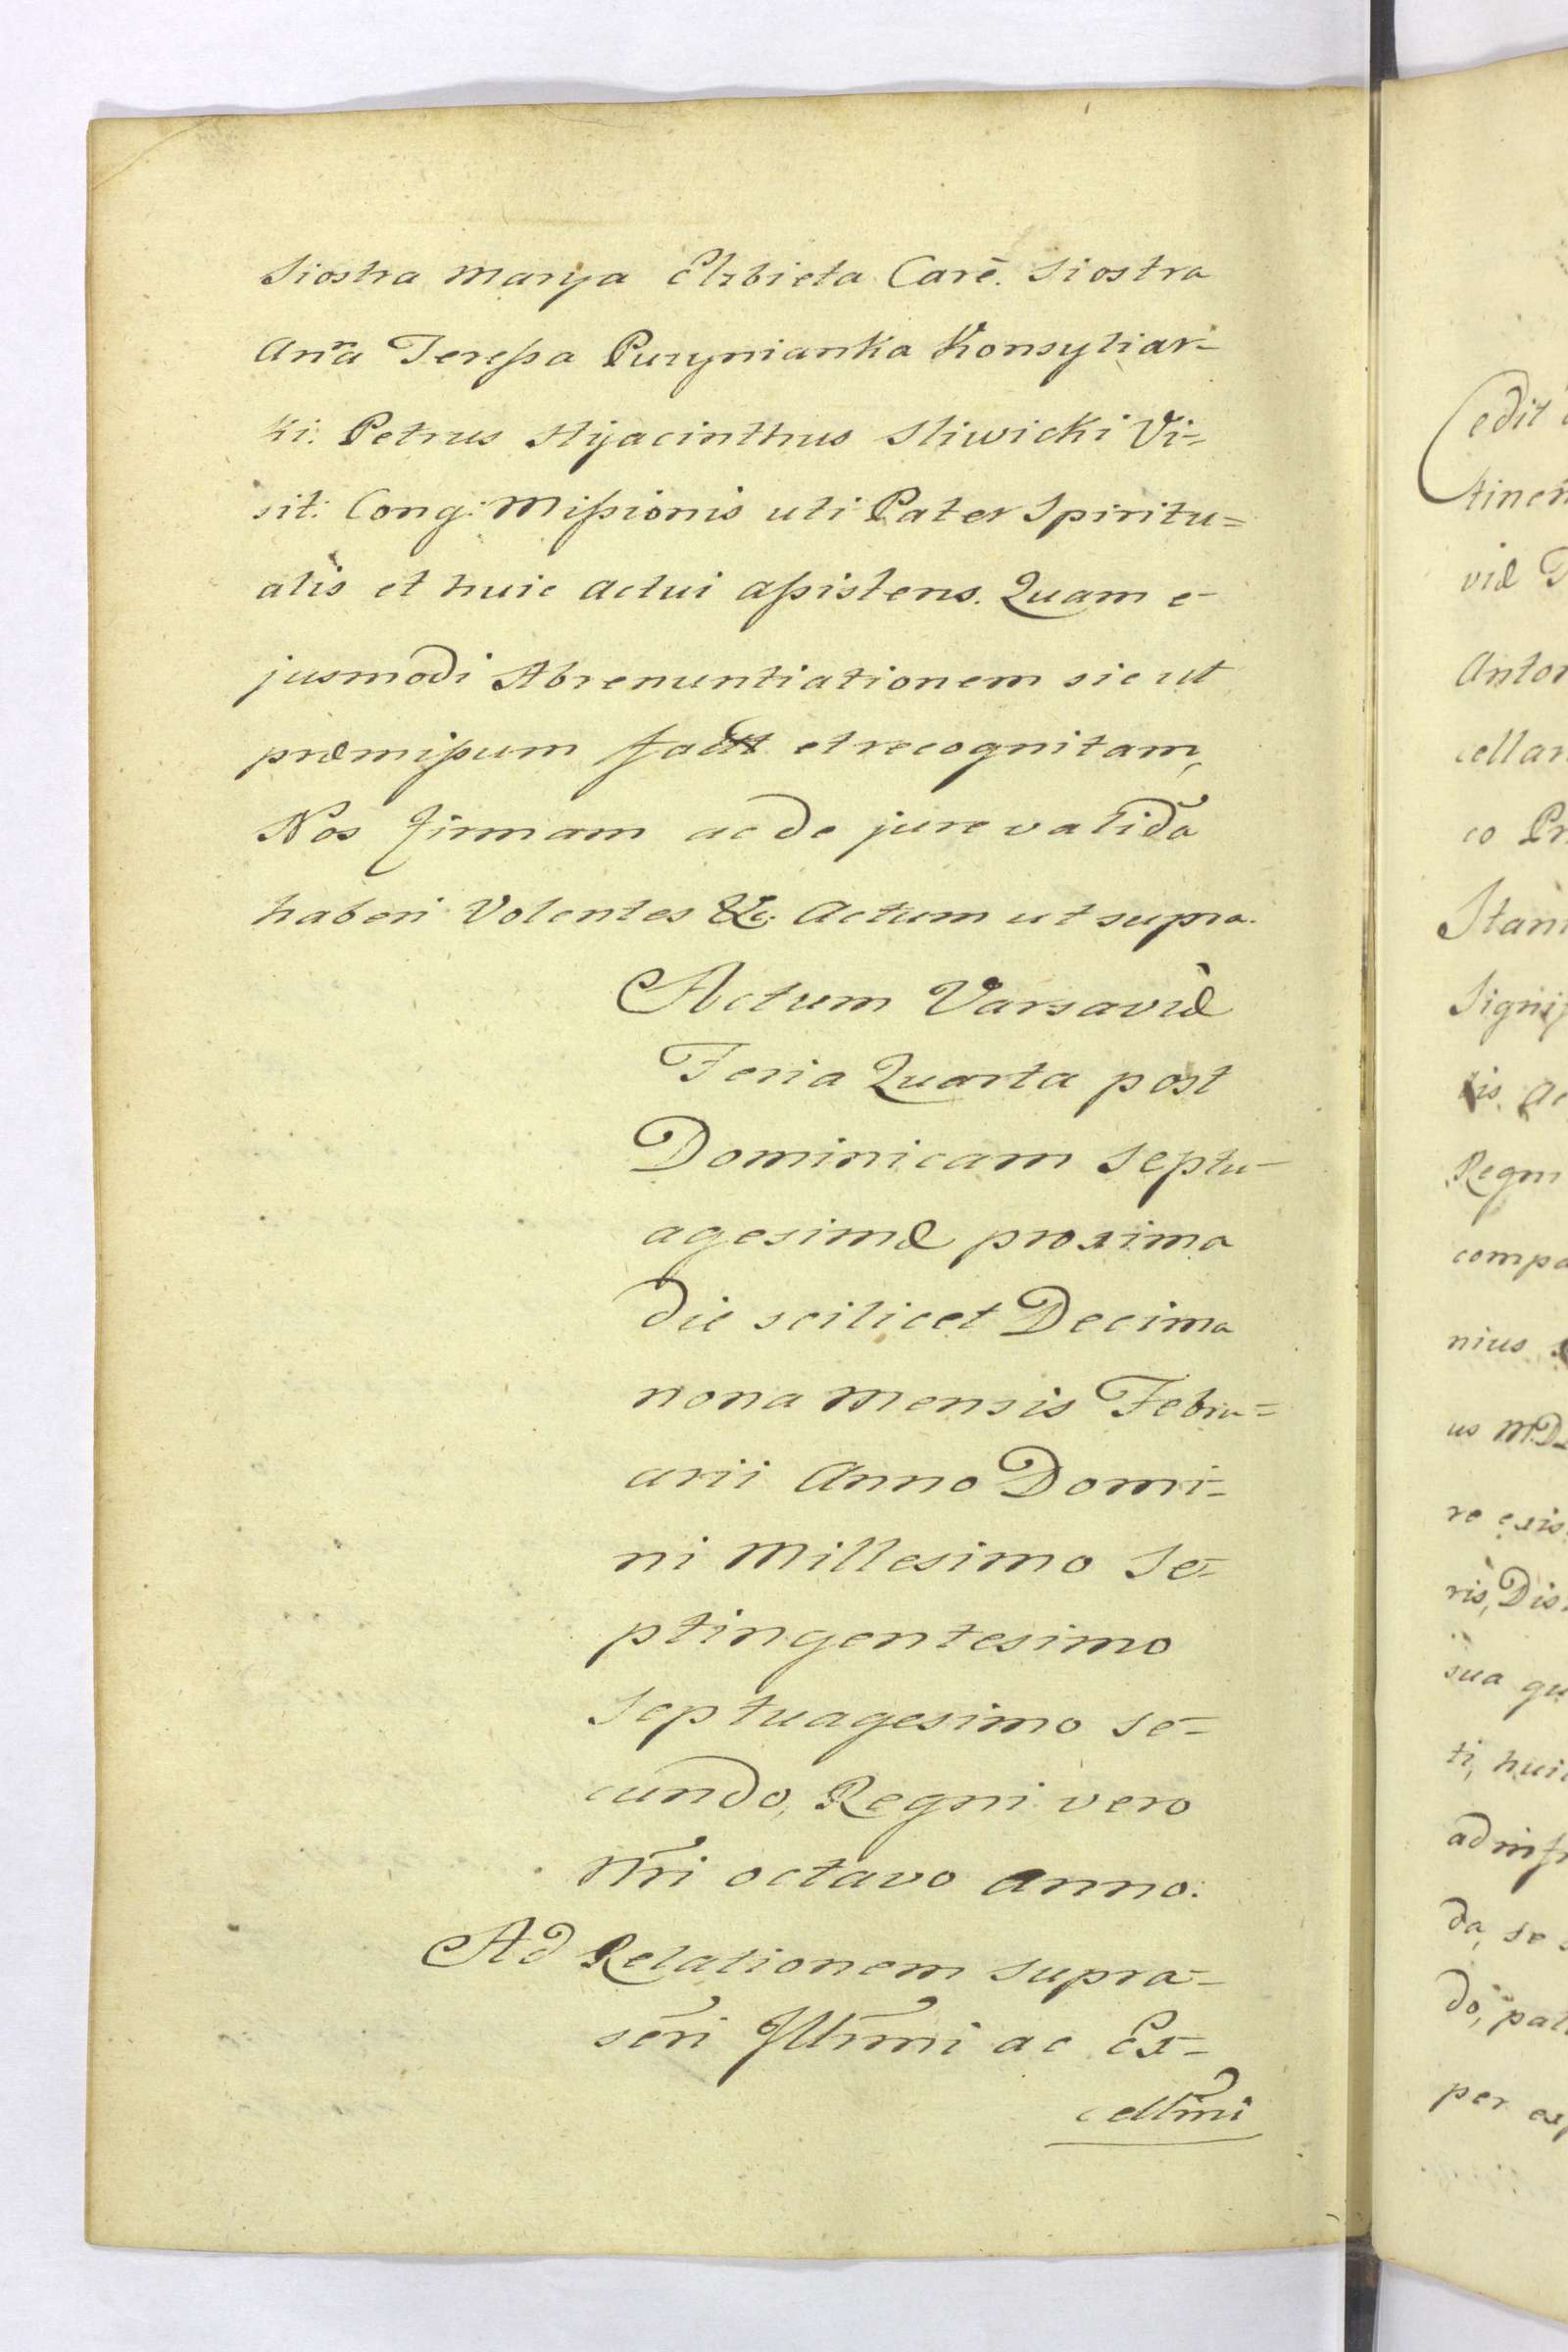 Siostra Marya Elzbieta Carē. Siostra
Anña Teressa Puzynianka Konsyliar-
ki. Petrus Hyacinthus Sliwicki Vi=
sit: Cong: Missionis uti Pater Spiritu=
alis et huic actui assistens. Quam e-
jusmodi Abrenuntiationem sicut
præmissum et recognitam,
Nos firmam ac de jure validã
haberi Volentes &c: Actum ut supra.
Actum Varsaviæ
Feria Quarta post
Dominicam Septu-
agesimæ proxima
die scilicet Decima
nona Mensis Febru=
arii Anno Domi-
ni Millesimo Se-
ptingentesimo
Septuagesimo se-
cundo, Regni vero
Nr̃i octavo anno.
Ad Relationem supra-
scr̃i Illm̃i ac Ex-
cellm̃i
Cedit
viæ
Anton
cellar
co Pr
Stani
Signif
Regni
compa
nius
us MD
re exis
ris, Dis
sua qu
ti, huic
ad inf
da, se
do, pal
per exp